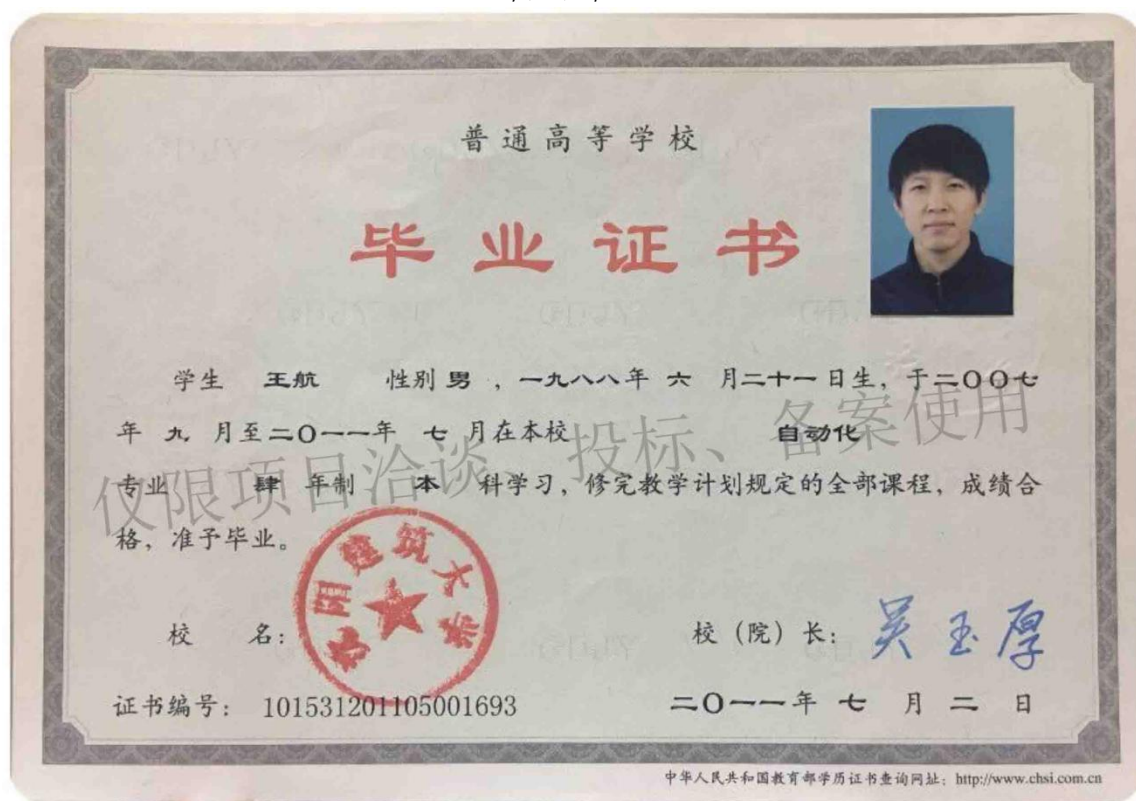 普通高等学校
毕业证书
学生 王航 性别 男 ，一九八八年 六 月二十一日生，于二〇〇七
年 九 月至二〇一一年 七 月在本校 自动化
专业 肆 年制 本 科学习，修完教学计划规定的全部课程，成绩合
格，准予毕业。
仅限项目洽谈、投标、备案使用
沈阳建筑大学
校 名：
校（院）长： 吴玉厚
证书编号： 101531201105001693
二〇一一年 七 月 二 日
中华人民共和国教育部学历证书查询网址：http://www.chsi.com.cn